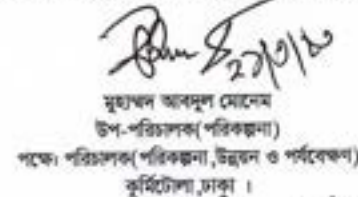 ২১/৩/১৩
মুহাম্মদ আবদুল মোনেম
উপ-পরিচালক(পরিকল্পনা)
পক্ষে। পরিচালক(পরিকল্পনা,উন্নয়ন ও পর্যবেক্ষণ)
কুর্মিটোলা,ঢাকা ।